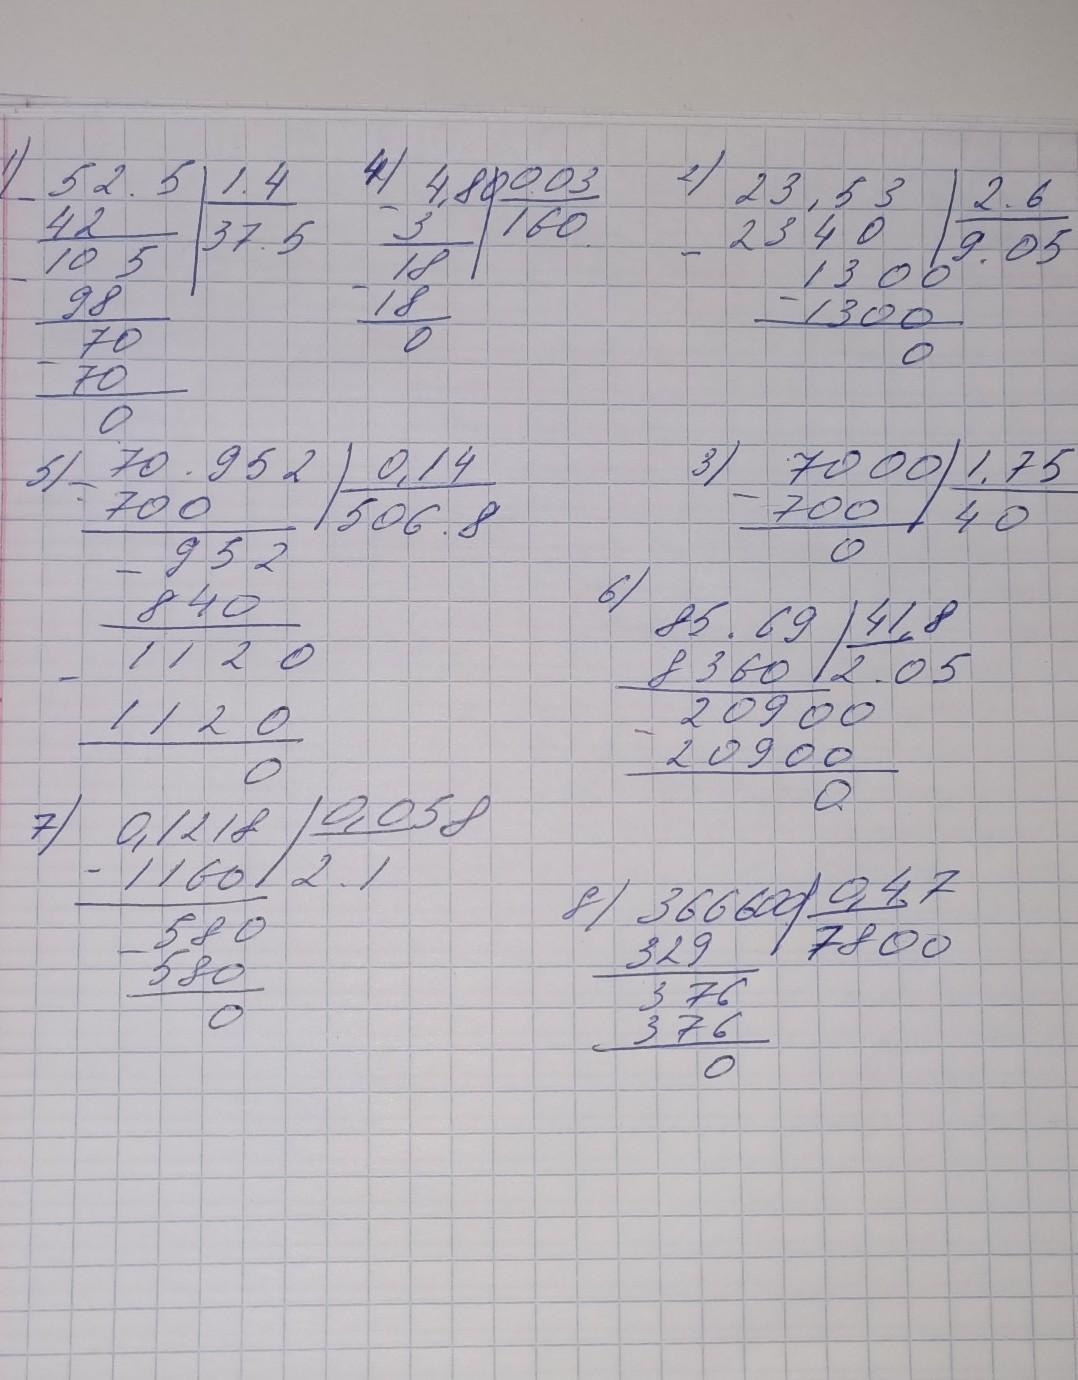 1) 52.5 1.4
- 42 37.5
10 5
- 98
70
- 70
0
4) 4,80 0.03
- 3 160.
18
- 18
0
2) 23,53 2.6
- 2340 9.05
1300
- 1300
0
5) 70.952 0,14
- 700 506.8
- 952
840
1120
- 1120
0
3) 7000 1.75
- 700 40
0
6) 85.69 41,8
8360 2.05
20900
- 20900
0
7) 0,1218 0,058
- 1160 2.1
580
- 580
0
8) 366600 0,47
329 7800
376
376
0